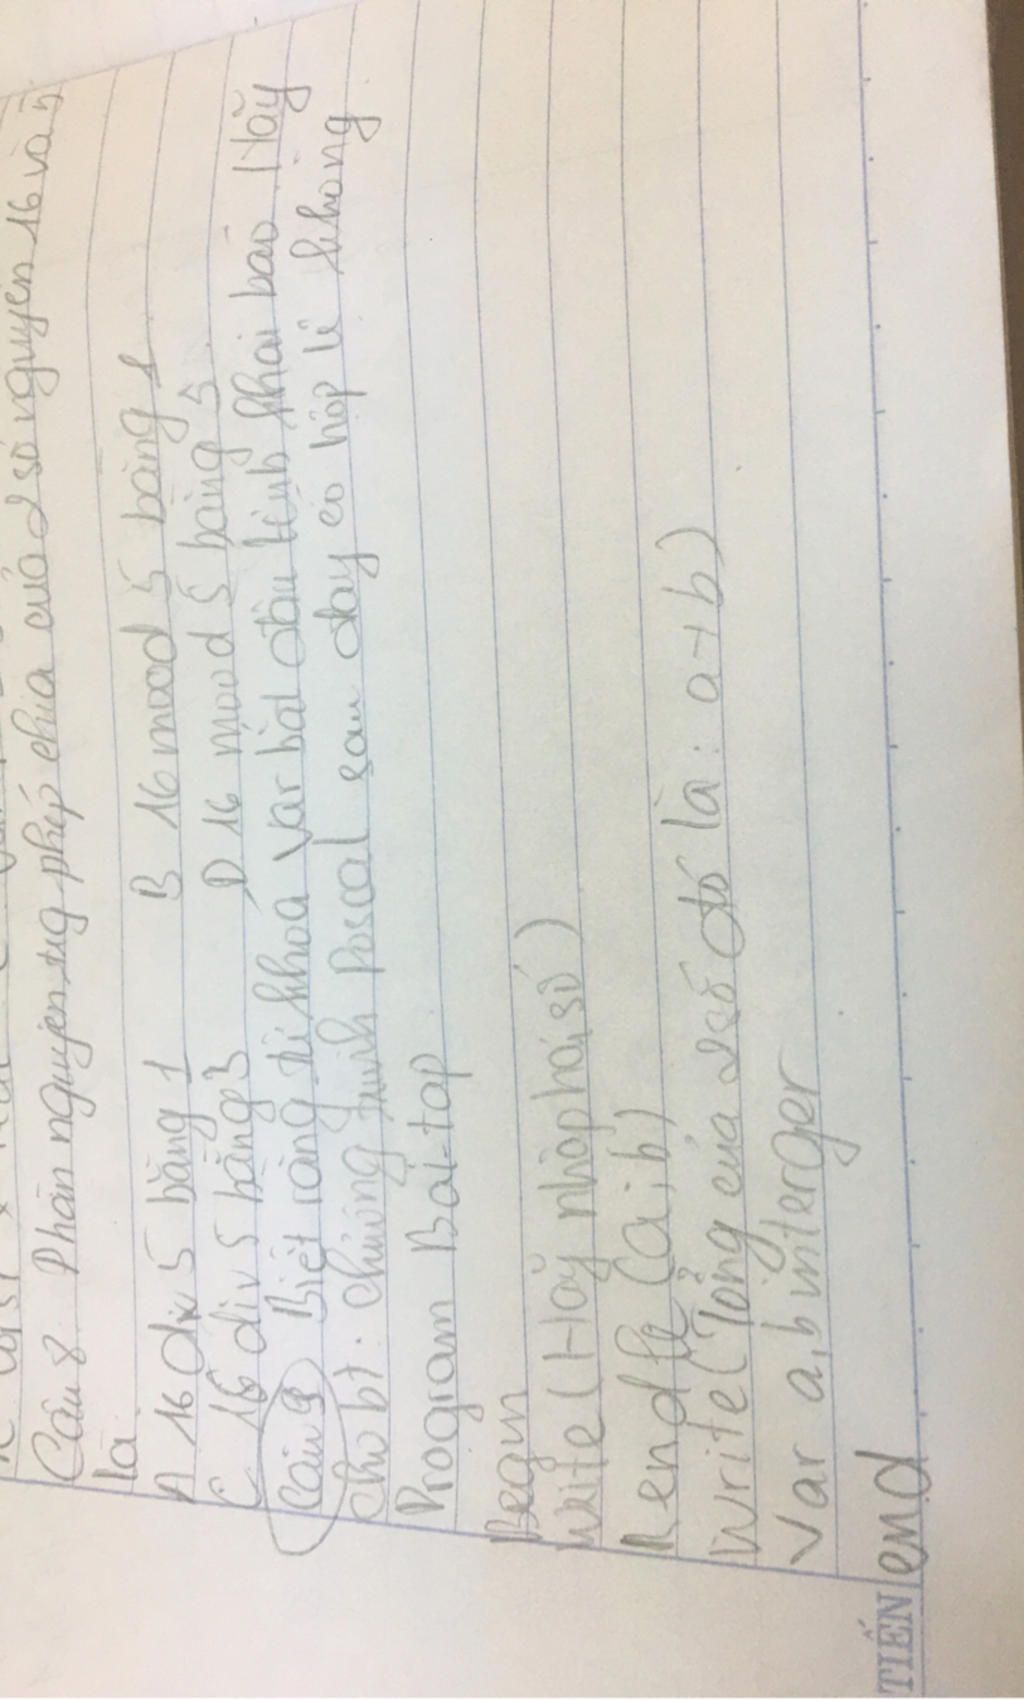 Câu 8 Phần nguyên trg phép chia của 2 số nguyên 16 và 5
là
A 16 div 5 bằng 1 B 16 mood 5 bằng 1
C 16 div 5 bằng 3 D 16 mood 5 bằng 3
Câu 9 Biết rằng từ khoá var bắt đầu lệnh khai báo Hãy
cho bt. chương trình Pascal sau đây có hợp lí không
Program Bai-tap
Begin
Write (Hãy nhập hai số)
(a,b)
Write (Tổng của 2 số đó là: a+b)
Var a,b interger
end
TIẾN